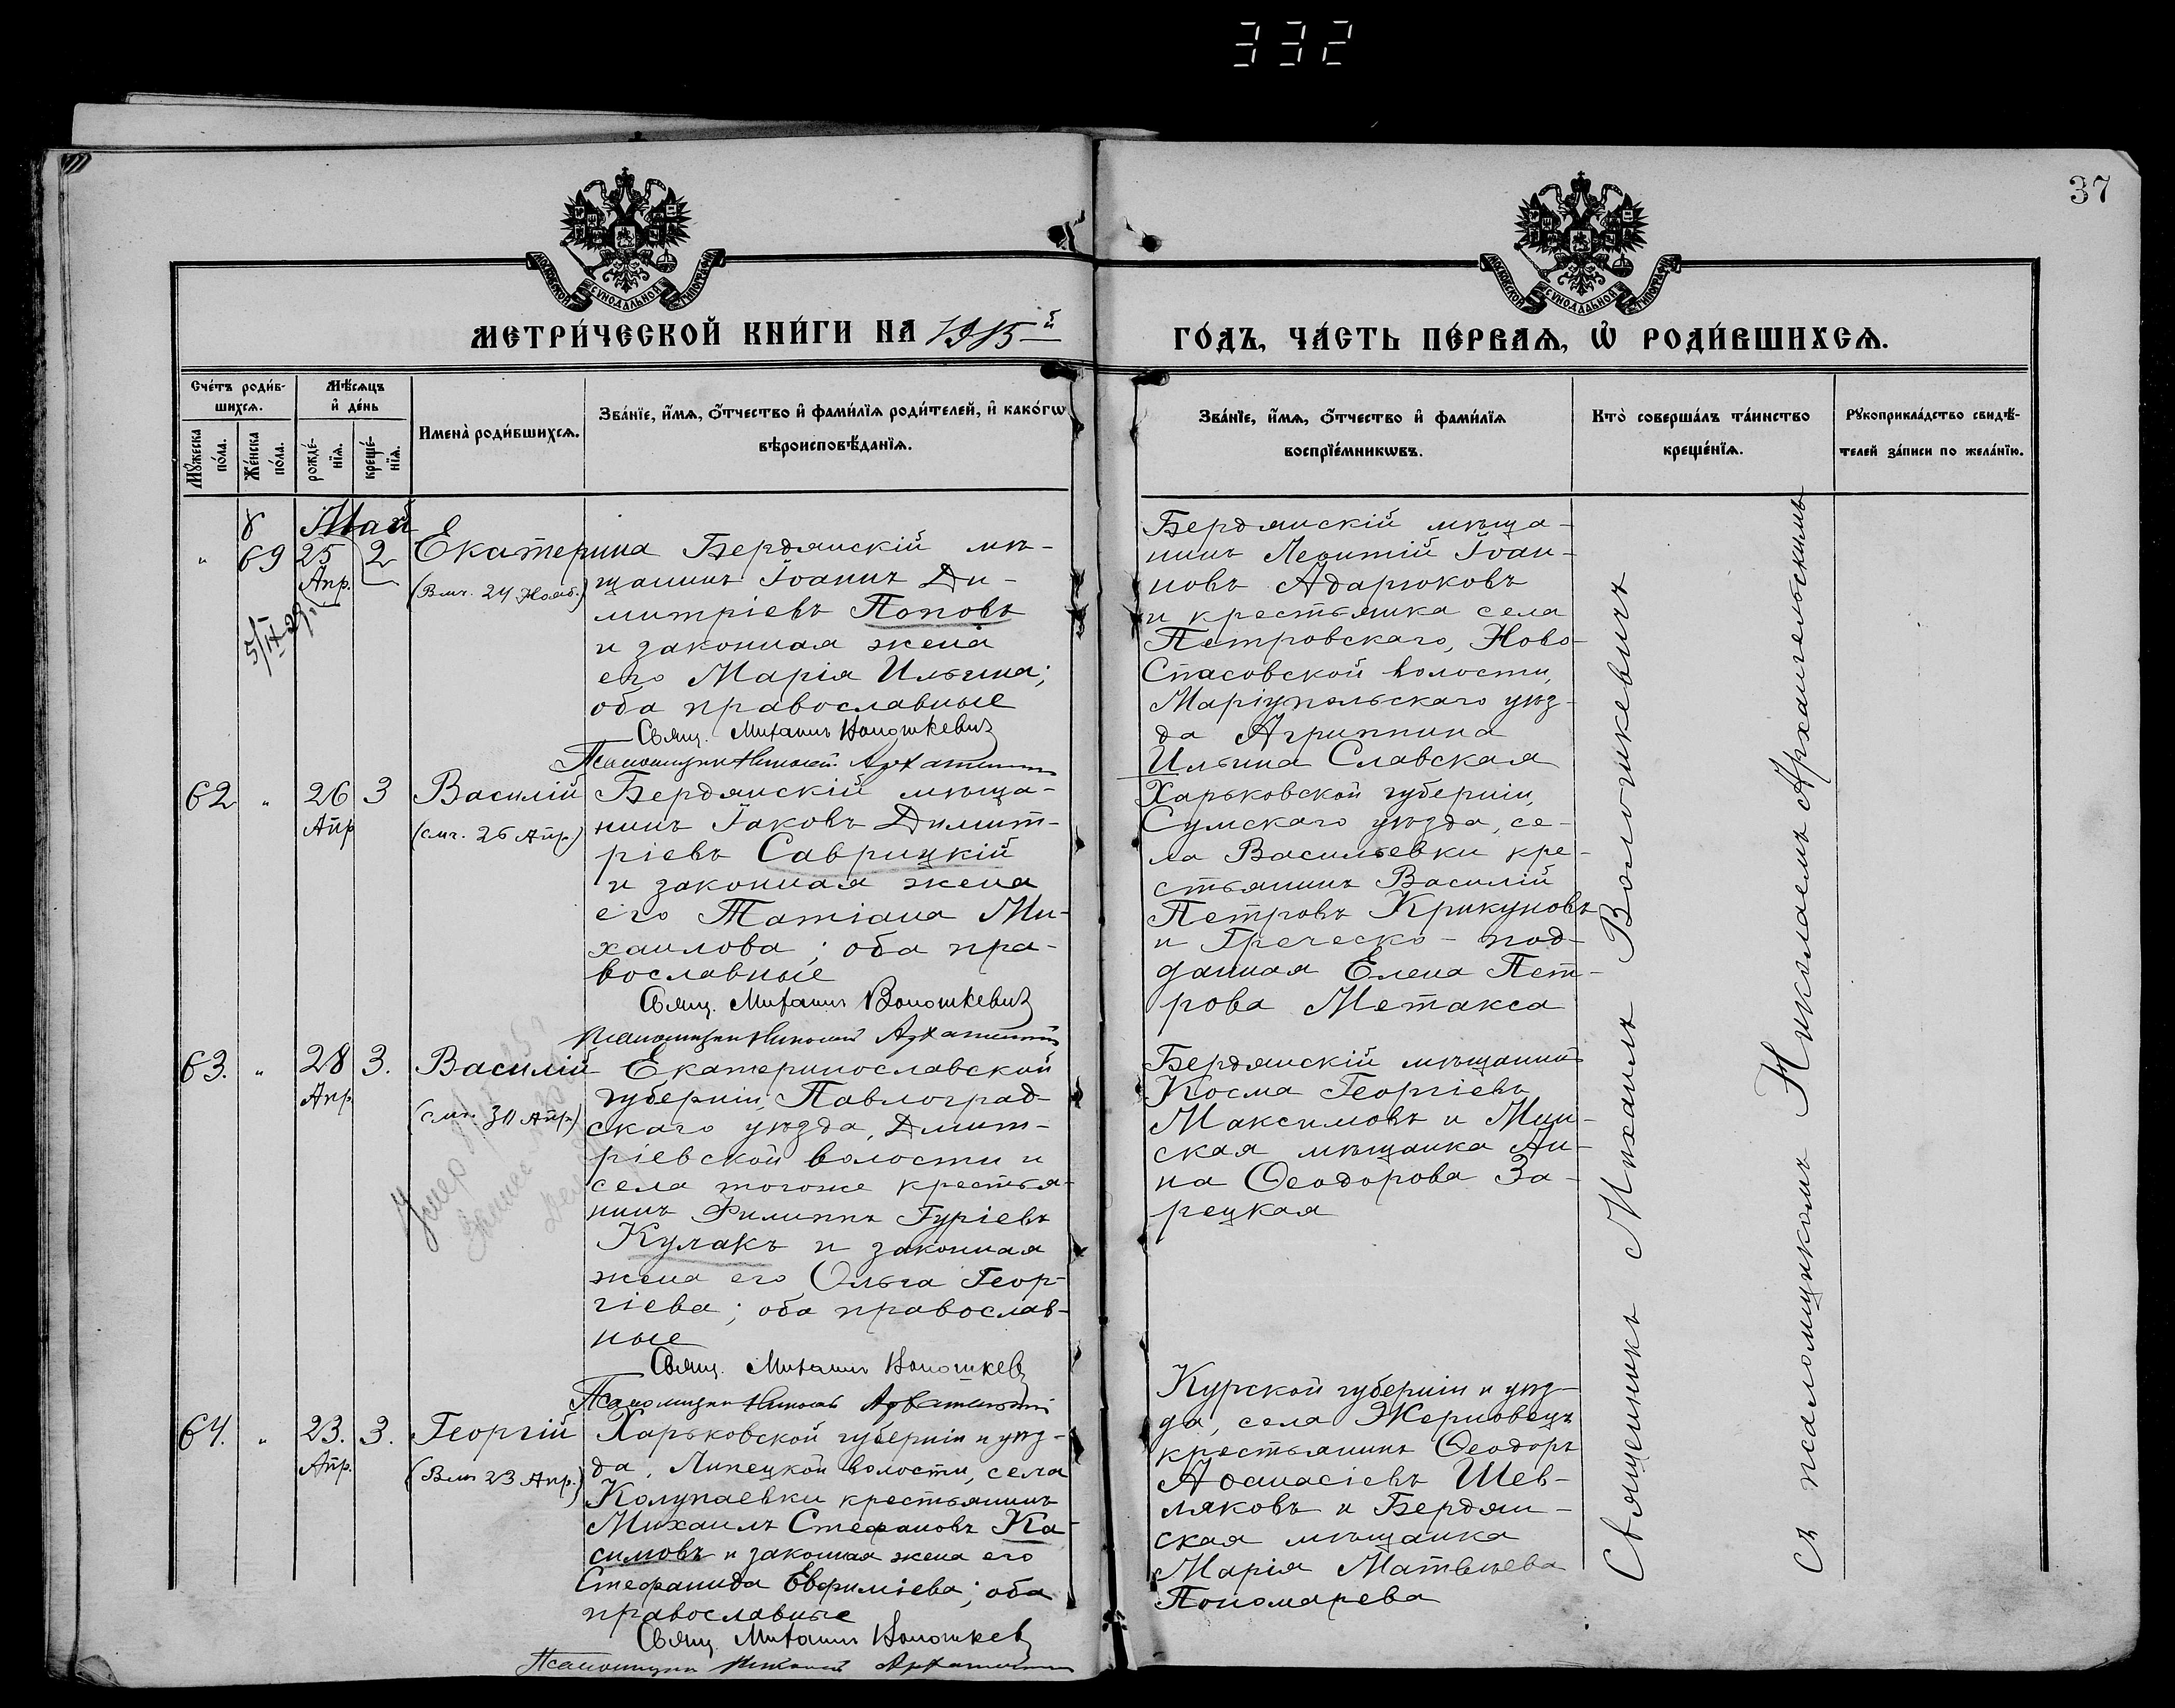 332
37
МОСКОВСКОЙ СѴНОДАЛЬНОЙ ТИПОГРАФІИ
МОСКОВСКОЙ СѴНОДАЛЬНОЙ ТИПОГРАФІИ
МЕТРИ́ЧЕСКОЙ КНИ́ГИ НА 1915й
ГО́ДЪ, ЧА́СТЬ ПЕ́РВАѦ, Ѡ҆ РОДИ́ВШИХСѦ.
Сче́тъ роди́в-
шихсѧ.
Мѹ́жеска по́ла.
Же́нска по́ла.
Мѣ́сѧцъ
и҆ де́нь
рожде́-
нїѧ.
креще́-
нїѧ.
Имена̀ роди́вшихсѧ.
Зва́нїе, и҆́мѧ, ѻ҆́тчество и҆ фами́лїѧ роди́телей, и҆ како́гѡ
вѣроисповѣ́данїѧ.
Зва́нїе, и҆́мѧ, ѻ҆́тчество и҆ фами́лїѧ
воспрїе́мникѡвъ.
Кто̀ соверша́лъ та́инство
креще́нїѧ.
Рѹкоприкла́дство свидѣ́-
телей за́писи по жела́нїю.
Май
" 69 25 2
Апр.
Екатерина
(Вмч. 24 Нояб.)
Бердянскій мѣ-
щанинъ Іоаннъ Ди-
митріевъ Поповъ
и законная жена
его Марія Ильина;
оба православные
Свящ. Михаилъ Волошкевич
Псаломщик Николай
Бердянскій мѣща-
нинъ Леонтій Іоан-
новъ Адарюковъ
и крестьянка села
Петровскаго, Ново-
Спасовской волости,
Маріупольскаго уѣз-
да Агриппина
Ильина Славская
62 " 26 3
Апр
Василій
(смч. 26 Апр.)
Бердянскій мѣща-
нинъ Іаковъ Димит-
ріевъ Саврицкій
и законная жена
его Татіана Ми-
хаилова; оба пра-
вославные
Свящ. Михаилъ Волошкевич
Псаломщик Николай
Харьковской губерніи,
Сумскаго уѣзда, се-
ла Васильевки кре-
стьянинъ Василій
Петровъ Крикуновъ
и Греческо-под-
данная Елена Пет-
рова Метакса
63. " 28 3.
Апр.
Василій
(смч. 30 Апр)
Умер
Екатеринославской
губерніи, Павлоград-
скаго уѣзда, Дмит-
ріевской волости и
села тогоже крестья-
нинъ Филиппъ Гуріевъ
Кулакъ и законная
жена его Ольга Геор-
гіева; оба православ-
ные
Свящ. Михаилъ Волошкев
Псаломщик Николай
Бердянскій мѣщанинъ
Косма Георгіевъ
Максимовъ и Мин-
ская мѣщанка Ан-
на Ѳеодорова За-
рецкая
64. " 23. 3.
Апр.
Георгій
(Вмч 23 Апр.)
Харьковской губерніи и уѣз-
да, Липецкой волости, села
Колупаевки крестьянинъ
Михаилъ Стефановъ Ка-
симовъ и законная жена его
Стефанида Евфиміева; оба
православные
Свящ. Михаилъ Волошкев
Псаломщик Николай
Курской губерніи и уѣз-
да, села Жерновецъ
крестьянинъ Ѳеодоръ
Аѳанасіевъ Шев-
ляковъ и Бердян-
ская мѣщанка
Марія Матвѣева
Пономарева
Священникъ Михаилъ Волошкевичъ
съ псаломщикомъ Николаемъ Архангельскимъ